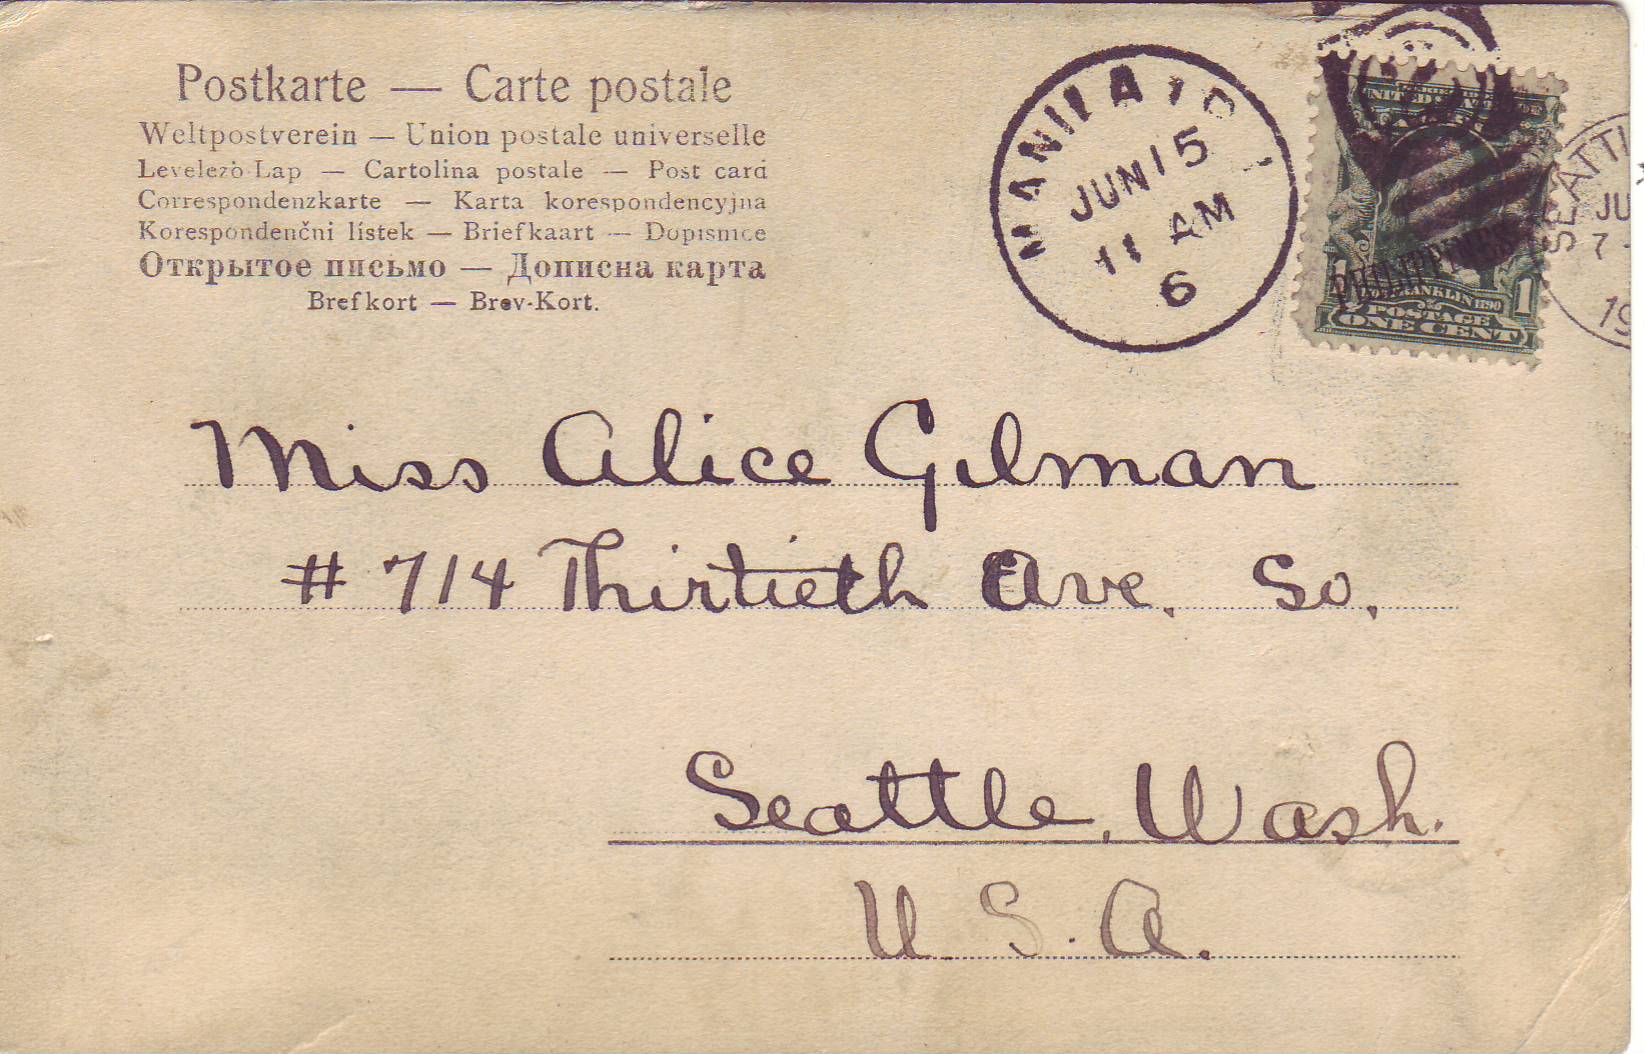 Postkarte — Carte postale
Weltpostverein — Union postale universelle
Levelező-Lap — Cartolina postale — Post card
Correspondenzkarte — Karta korespondencyjna
Korespondenčni lístek — Briefkaart — Dopisnice
Открытое письмо — Дописна карта
Brefkort — Brev-Kort.
MANILA
JUN 15
11 AM
6
PHILIPPINES
FRANKLIN
1
POSTAGE
ONE CENT
Miss Alice Gilman
# 714 Thirtieth Ave. So.
Seattle, Wash.
U. S. A.